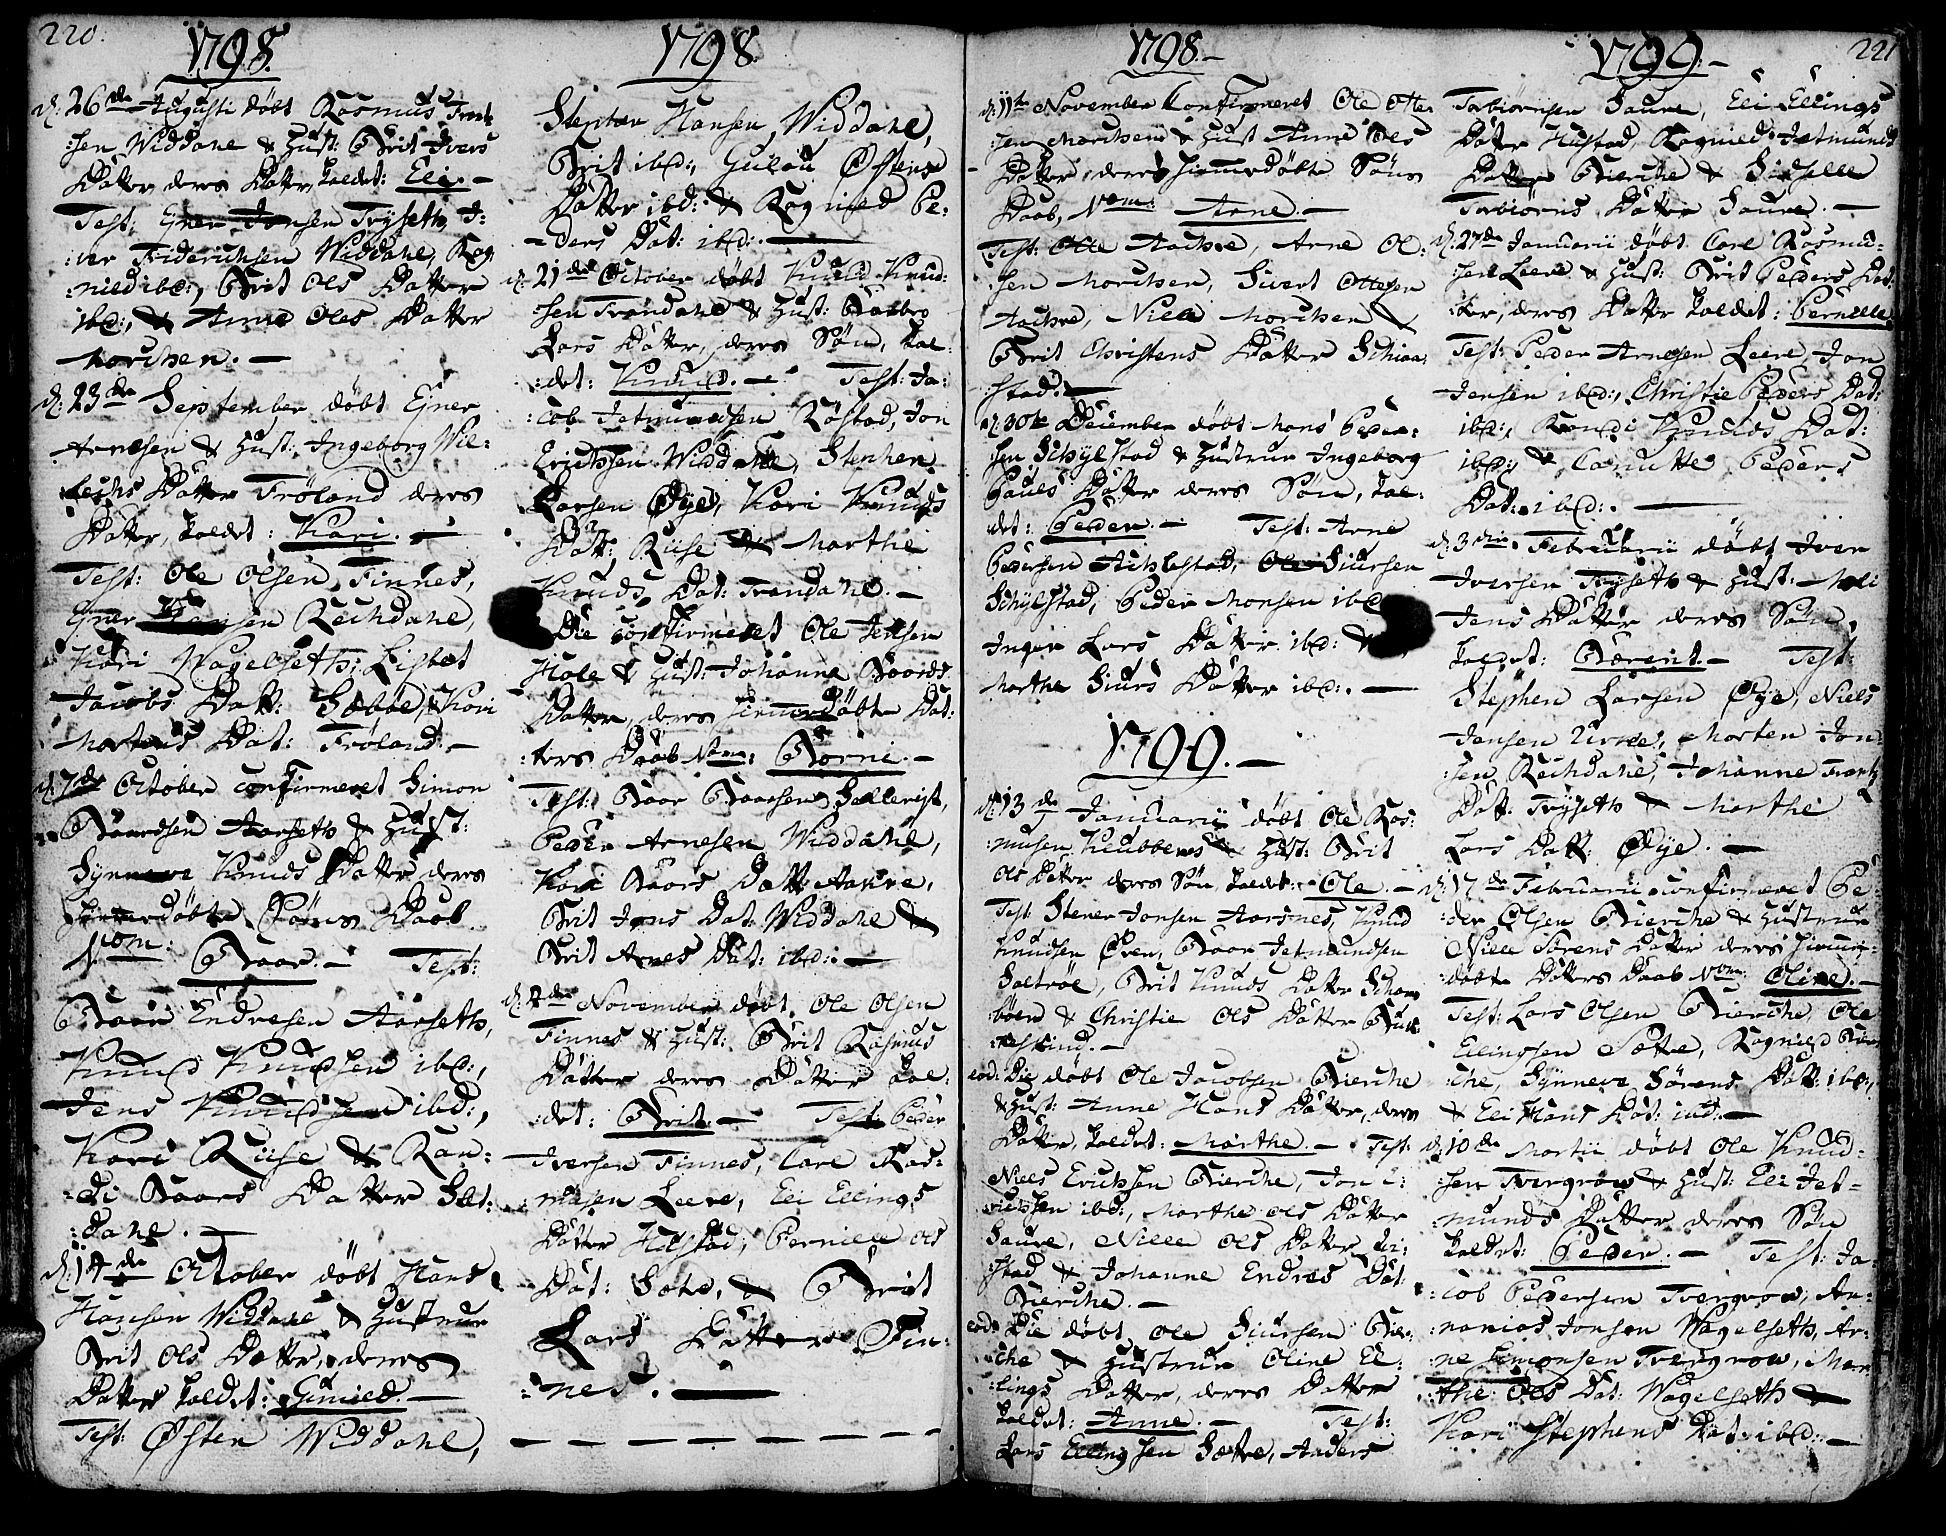 220.
1798.
d: 26de Augusti døbt Rasmus Frantz
:sen Widdahl & Hust: Brit Ivers
Datter, deres Datter kaldet: Eli. —
Test: Ejner Jonsen Trÿseth, I:
:ver Friderichsen Widdahl, Rag
:nild ibd:, Brit Ols Datter
ibd:, & Anne Oles Datter
Morchen. —
d: 23de September døbt Ejner
Arnesen & Hust: Ingeborg Wil:
:lochs Datter Frøland deres
Datter, kaldet: Kari. —
Test: Ole Olsen Finnes,
Ejner Hansen Rechdahl,
Kari Wagelseth, Lisbet
Jacobs Datt: Sæbøe, & Kari
Mortens Dat: Frøland. —
d: 7de October confirmeret Simon
Baardsen Aarseth & Hust:
Synneve Knuds Datter deres
hiemmedøbte Søns Daab
Nom: Baar. — Test:
Baar Endresen Aarseth,
Knud Knudsen ibd:,
Jens Knudsen ibd:,
Kari Riise & Ran:
:di Baars Datter Sæt:
:dahl. —
d: 14de October døbt Hans
Hansen Widdahl & Hustrue
Brit Ols Datter, deres
Datter kaldet: Gunild —
Test: Østen Widdahl,
1798
Stephen Hansen Widdahl,
Brit ibd:, Gulou Østens
Datter ibd: & Ragnild Pe:
:ders Dat: ibd: —
d: 21de October døbt Knud Knud:
:sen Trandahl & Hust: Baalbor
Lars Datter, deres Søn, kal:
:det: Knud. — Test: Ja:
:cob Jetmundsen Røstad, Jon
Erichsen Widdahl, Stephen
Larsen Øÿe, Kari Knuds
Datt: Riise & Marthe
Knuds Dat: Trandahl. —
Die confirmeret Ole Jensen
Hole & Hust: Johanne Baards
Datter, deres hiemmedøbte Dat:
:ters Daab Nom: Borni. —
Test: Baar Baarsen Hellerÿst,
Peder Arnesen Widdahl,
Kari Baars Datt: Aakre,
Brit Jons Dat: Widdahl &
Brit Arnes Dat: ibd: —
d: 4de November døbt Ole Olsen
Finnes & Hust: Brit Rasmus
Datter deres Datter kal:
:det: Brit — Test: Peder
Iversen Finnes, Carl Ras:
:musen Leere, Eli Ellings
Datter Hustad, Pernille Ols
Dat: Sætre, & Brit
Lars Datter Fin:
:nes. —
1798. —
d: 11te November Confirmeret Ole Otte
:sen Morchen & Hust Anne Ols
Datter, deres hiemmedøbte Søns
Daab, Nom: Arne. —
Test: Ole Aachre, Arne Ol:
:sen Morchen, Sivert Ottesen
Aachre, Nille Morchen &
Brit Christens Datter Schiaa
:stad. —
d: 30te December døbt Mons Peder:
:sen Schÿlstad & Hustrue Ingeborg
Pouls Datter deres Søn, kal:
:det: Peder. — Test: Arne
Pedersen Schÿlstad, Ole Siursen
Schÿlstad, Peder Monsen ibd
Inger Lars Datter ibd: &
Marthe Siurs Datter ibd: —
1799. —
d: 13de Januarii døbt Ole Ras:
:musen Klubbenes & Hust: Brit
Ols Datter deres Søn, kaldet: Ole. —
Test: Stener Jonsen Aarsnes, Knud
Knudsen Øven, Baar Jetmundsen
Saltrøe, Brit Knuds Datter Schaar
:bøen & Christie Ols Datter Buck
:eskind. —
eod: Die døbt Ole Jacobsen Bierche
& Hust: Anne Hans Datter, deres
Datter, kaldet: Marthe. — Test:
Niels Erichsen Bierche, Jon E:
:richsen ibd:, Marthe Ols Datter
Saure, Nille Ols Datter Hu:
:stad & Johanne Endres Dat:
Bierche. —
eod: Die døbt Ole Siursen Bier:
:che & Hustrue Oline El:
:lings Datter, deres Datter
kaldet: Anne. — Test:
Lars Ellingsen Sætre, Anders
1799. —
221
Torbiørnsen Saure, Eli Ellings
Datter Hustad, Ragnild Jetmunds
Datter Bierche & Sidselle
Torbiørns Datter Saure. —
d: 27de Januarii døbt Carl Rasmu:
:sen Leere & Hust: Brit Peders Dat:
:ter, deres Datter kaldet: Pernelle.
Test: Peder Arnesen Leere, Jon
Jensen ibd:, Christie Peders Dat:
ibd:, Randi Knuds Dat:
ibd: & Canutte Peders
Dat: ibd: —
d: 3die Februarii døbt Iver
Iversen Trÿseth & Hust: Mali
Jens Datter deres Søn,
kaldet: Bærent. — Test:
Stephen Larsen Øÿe, Niels
Jensen Urke, Morten Jon:
:sen Rechdahl, Johanne Frantz
Datt: Trÿseth & Marthe
Lars Datt: Øÿe. —
d: 17de Februarii confirmeret Pe:
:der Olsen Bierche & Hustrue
Nille Sørens Datter deres hiemme:
:døbte Datters Daab Nom: Oline. —
Test: Lars Olsen Bierche, Ole
Ellingsen Sætre, Ragnild Bier
:che, Synneve Sørens Datt: ibd:,
& Eli Hans Dat: ibd: —
d: 10de Martii døbt Ole Knud:
:sen Tvergrow & Hust: Eli Jet=
:munds Datter deres Søn
kaldet: Peder. — Test: Ja:
:cob Pedersen Tvergrow, An:
:nanias Jonsen Wagelseth, Ar:
:ne Simonsen Tvergrow, Mar
:the Ols Dat: Wagelseth &
Kari Stephens Dat: ibd: —